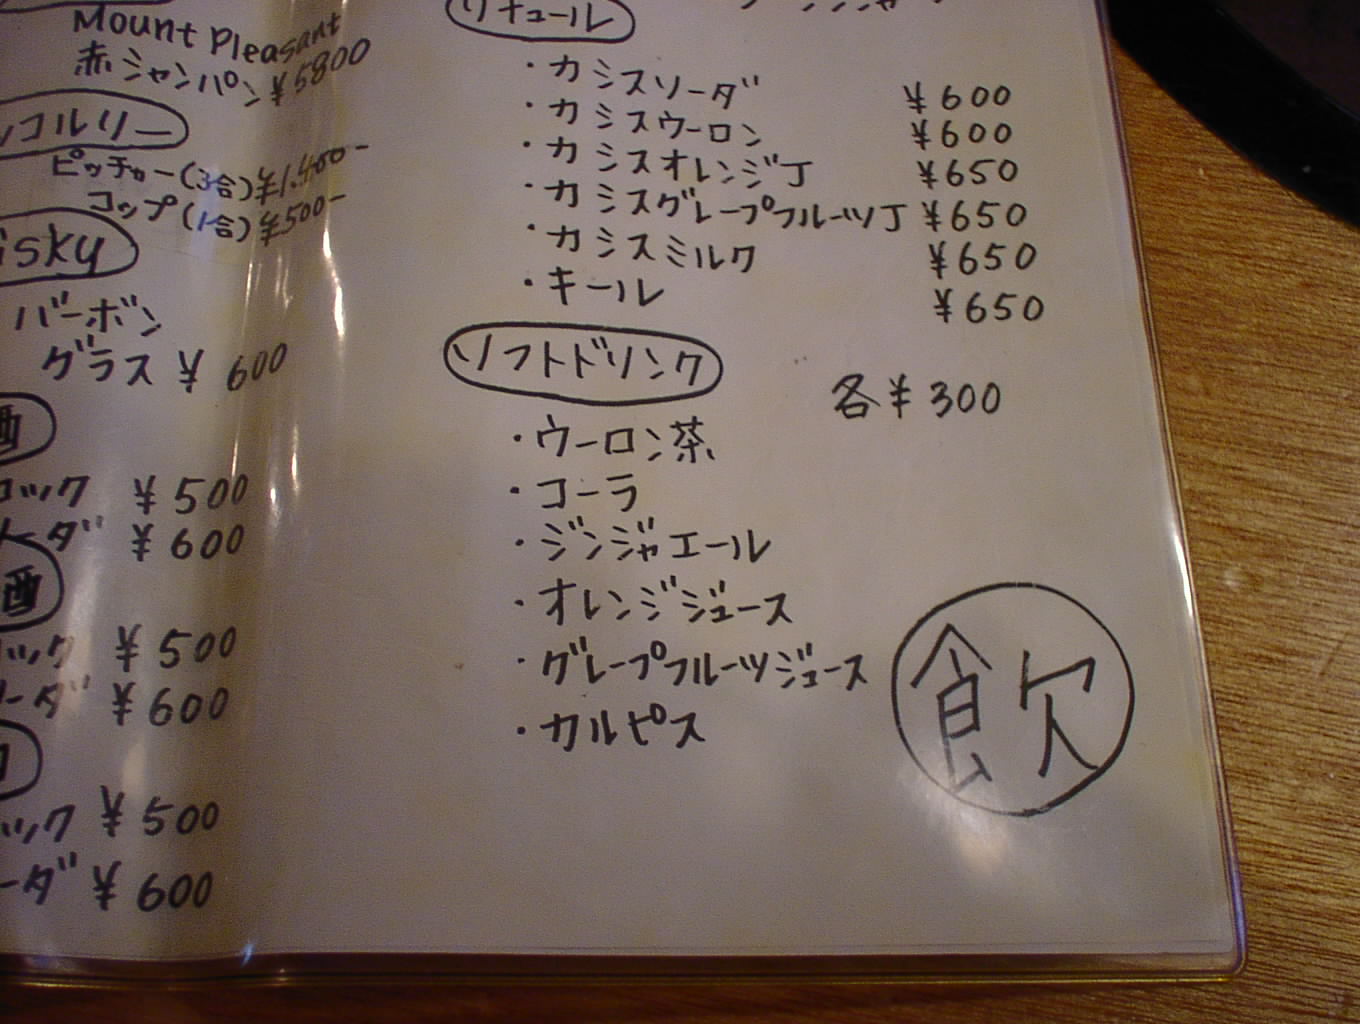 Mount Pleasant
赤シャンパン ¥5800
ッコルリー
ピッチャー(3合) ¥1.400-
コップ(1合) ¥500-
isky
バーボン
グラス ¥600
酒
ロック ¥500
ーダ ¥600
酒
ック ¥500
ーダ ¥600
ック ¥500
ーダ ¥600
リキュール
・カシスソーダ ¥600
・カシスウーロン ¥600
・カシスオレンジJ ¥650
・カシスグレープフルーツJ ¥650
・カシスミルク ¥650
・キール ¥650
ソフトドリンク
各¥300
・ウーロン茶
・コーラ
・ジンジャエール
・オレンジジュース
・グレープフルーツジュース
・カルピス
飲